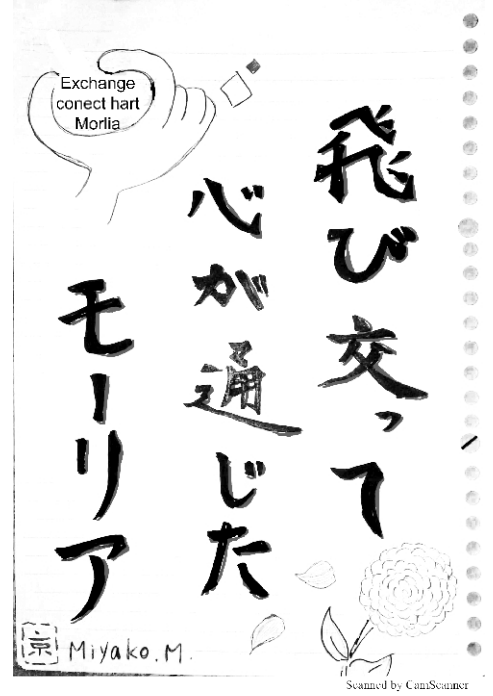 Exchange
conect hart
Morlia
飛び交って
心が通じた
モーリア
京 Miyako.M.
Scanned by CamScanner